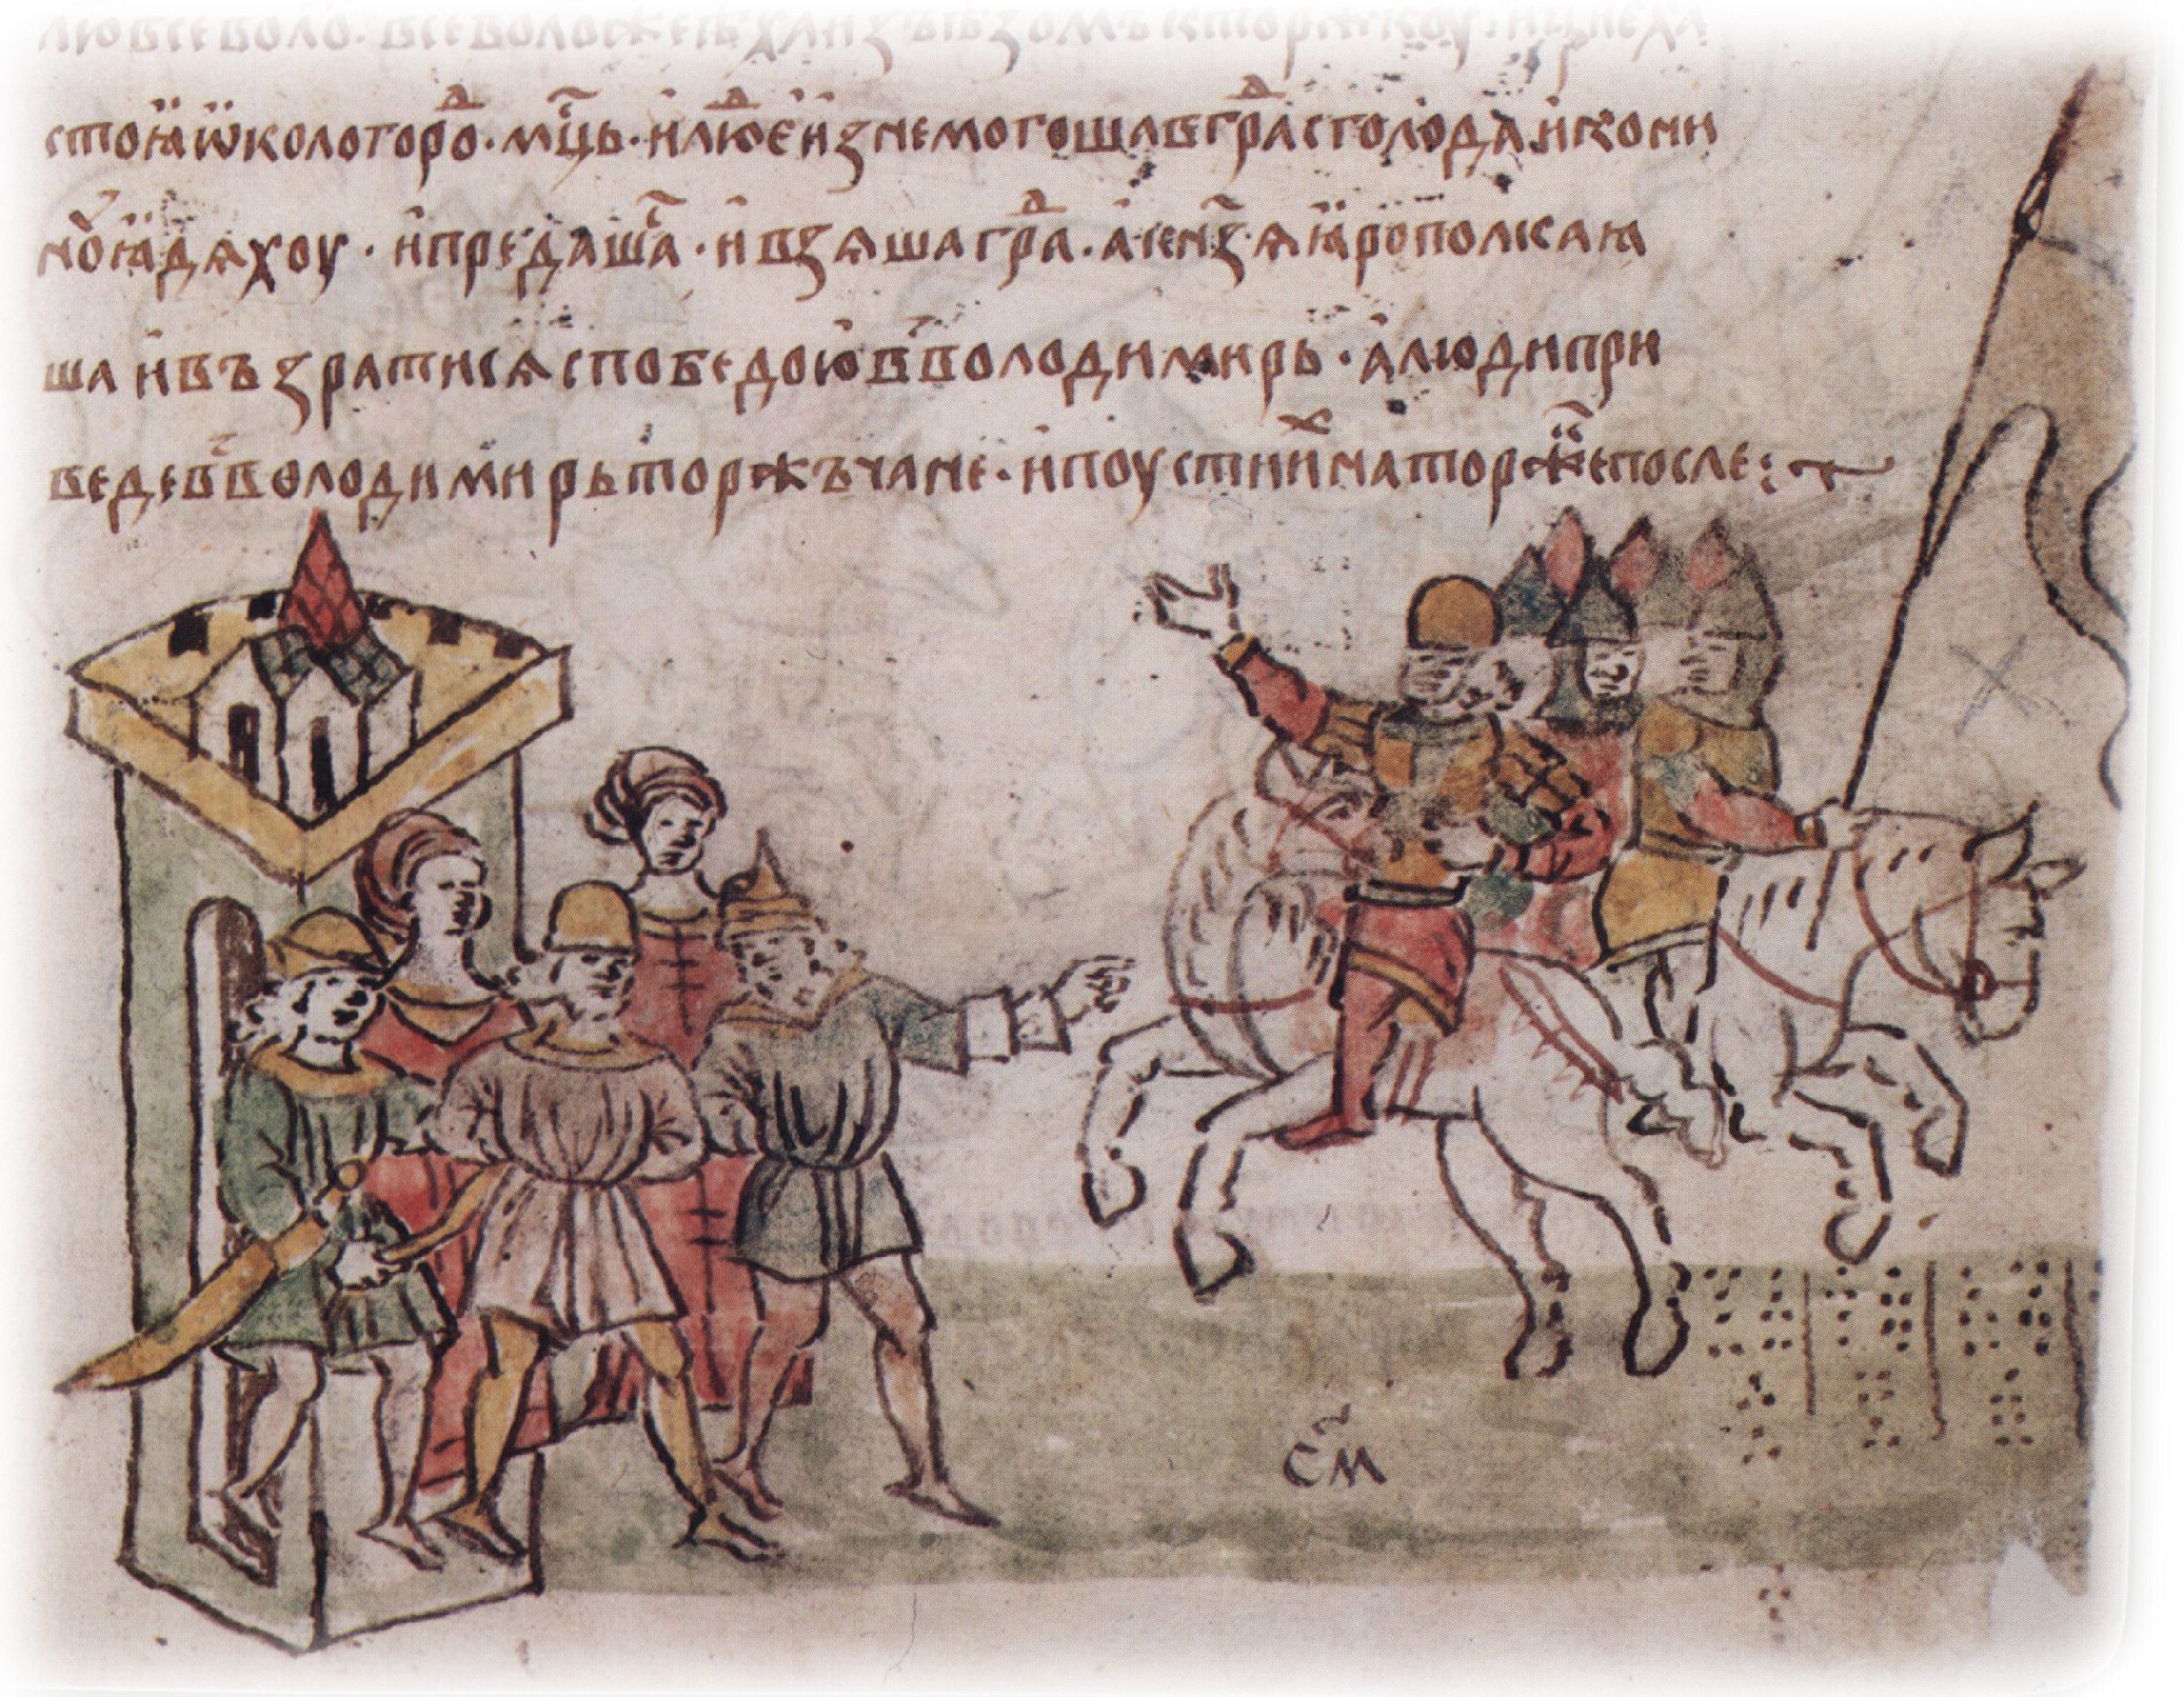 стоꙗ ѡколо гороⷣ · мⷭ҇ць · и люⷣе изнемогоша в граⷣ с голода · и кони
ноꙗдѧхоу · и предашаⷭ · и взѧша граⷣ · а кнⷤзѧ ꙗрополка ꙗ
ша и възратисѧ с победою в володимирь · а люди при
веде в володимирь торжъчане · и поусти иⷯ на торжⷦе после
с҃м